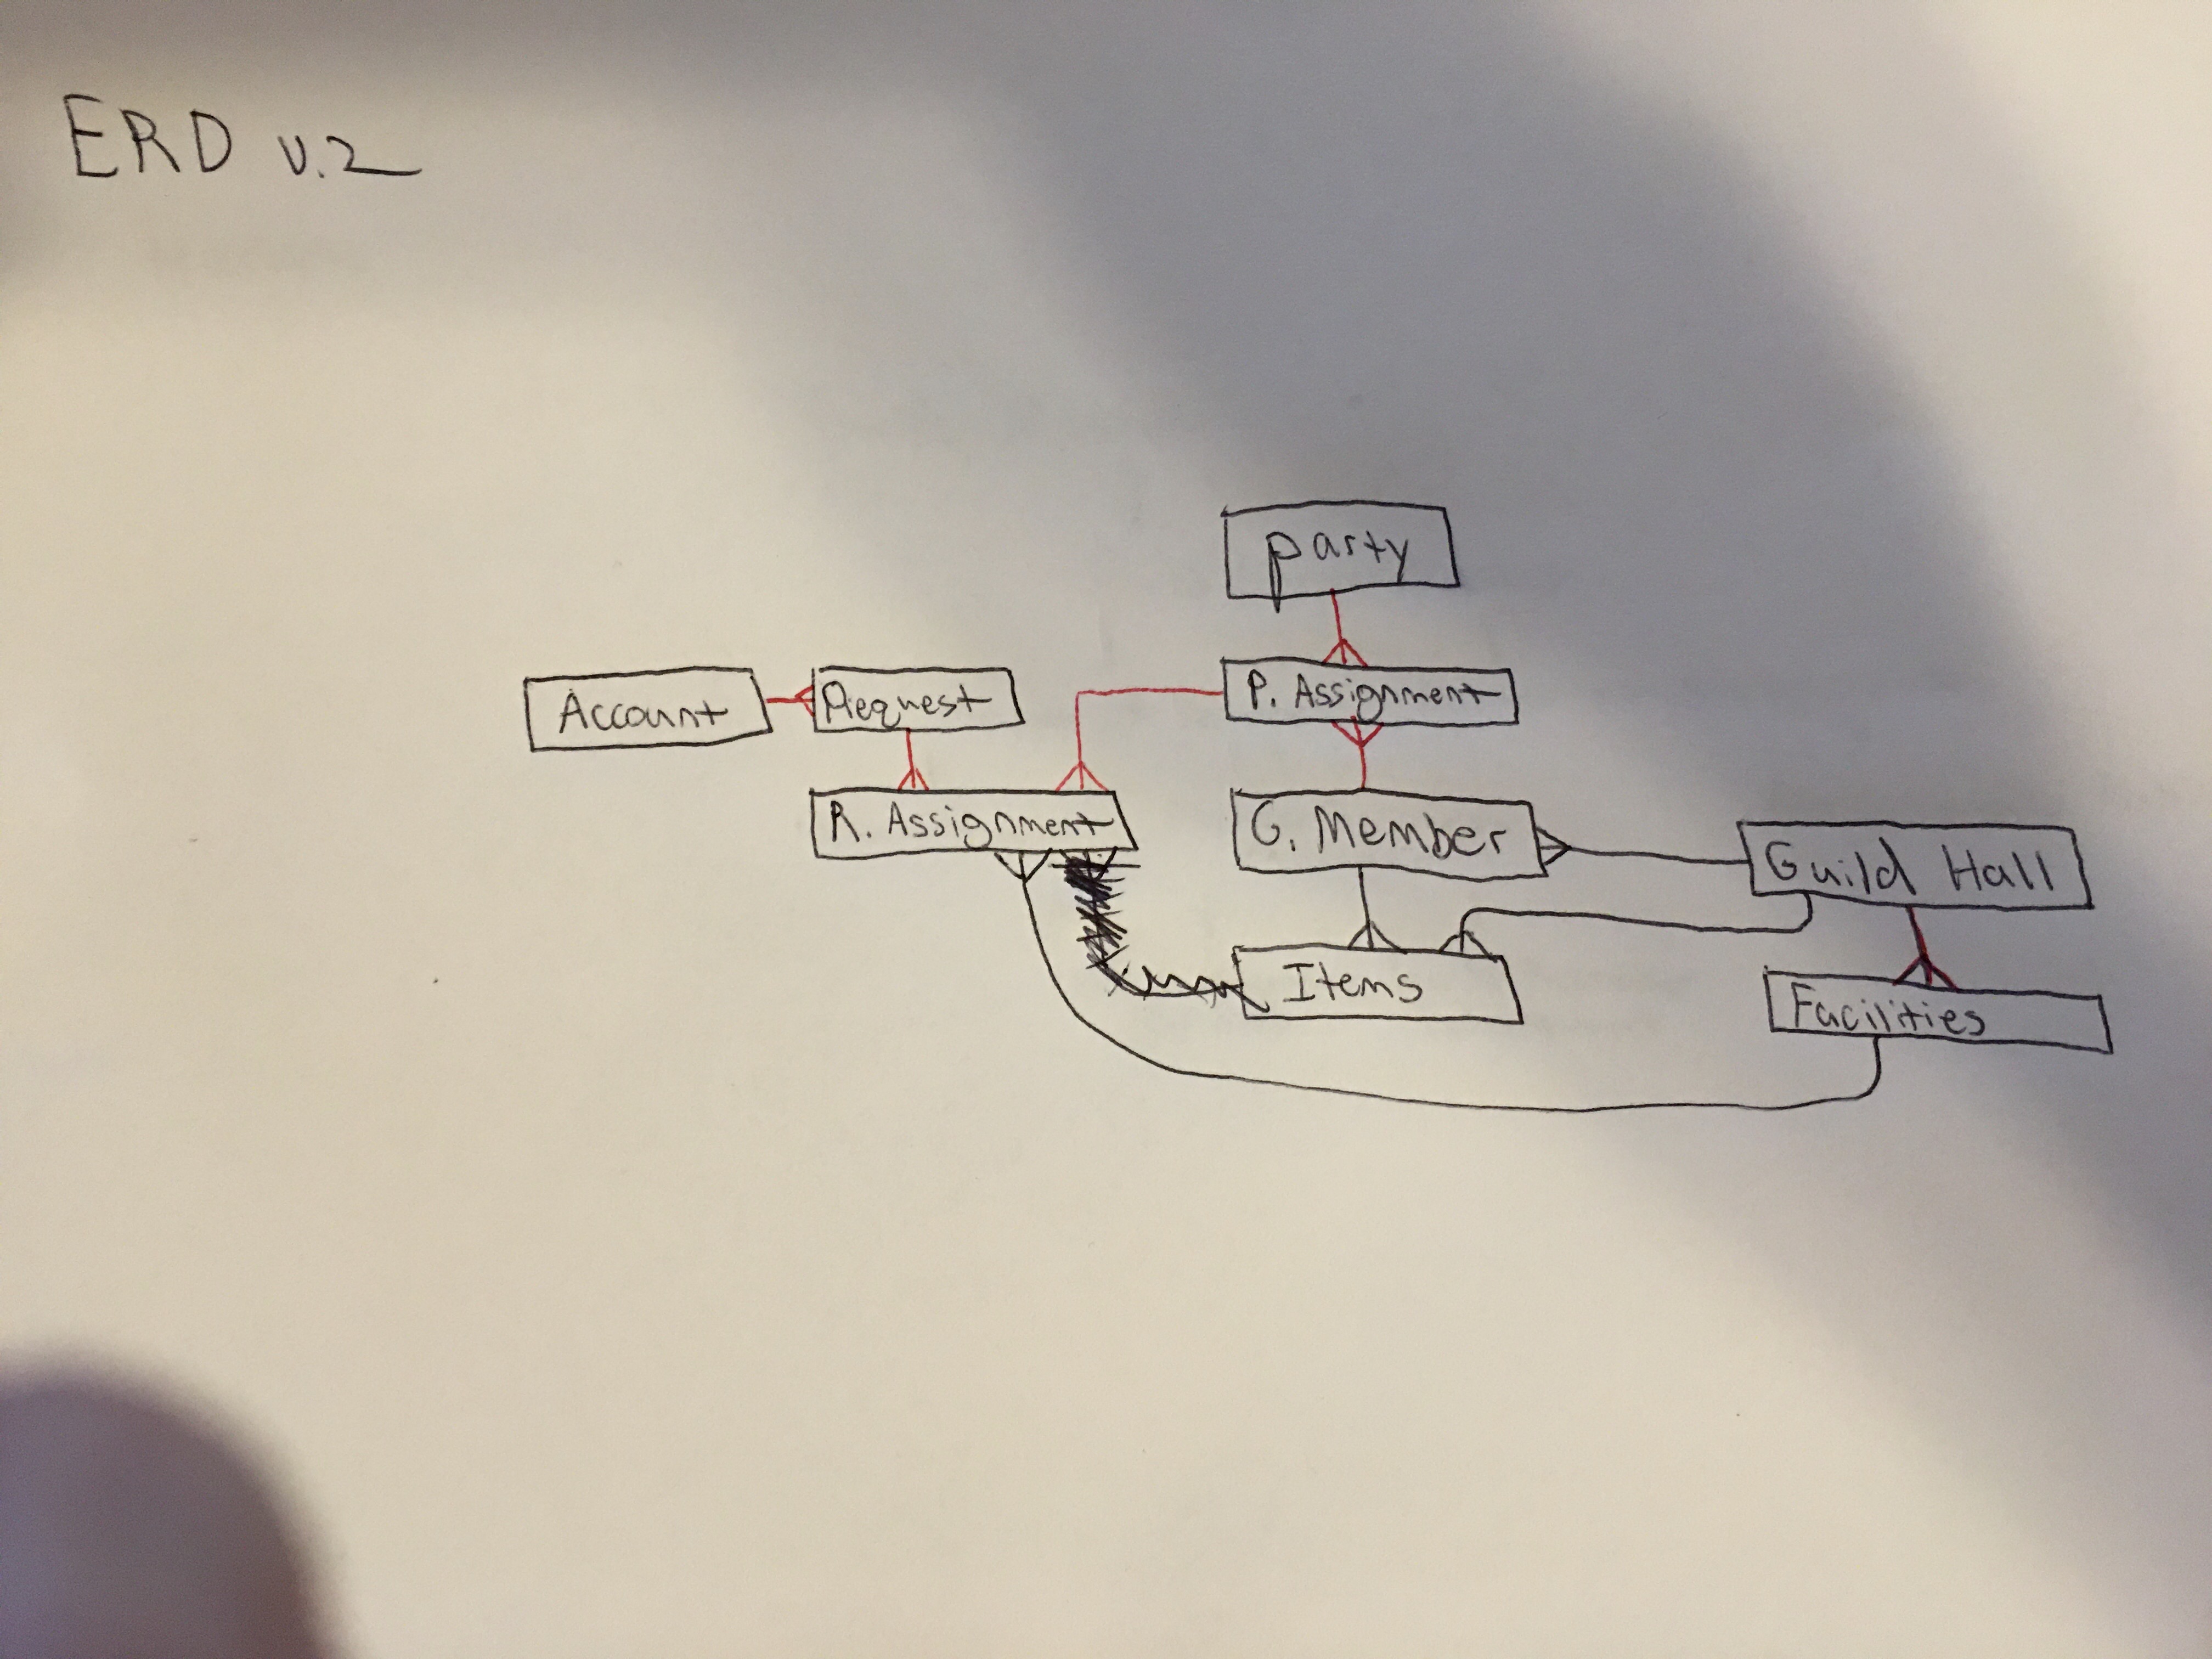 ERD v.2
party
Account
Request
P. Assignment
R. Assignment
G. Member
Guild Hall
Items
Facilities